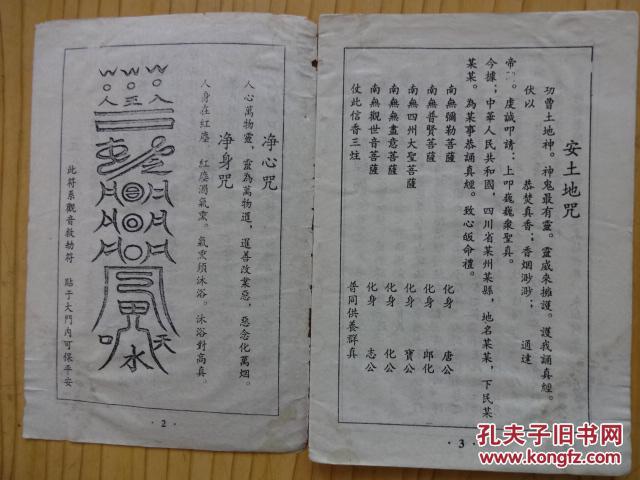 净心咒
人心萬物靈，靈為萬物道，善改業惡，惡念化萬烟。
净身咒
人身在紅塵，紅塵濁氣熏。氣熏須沐浴。沐浴對高真。
此符系觀音救劫符 貼于大門内可保平安
·2·
安土地咒
功曹土地神。神鬼最有靈。靈威來擁護。護我誦真經。
伏以 恭焚真香；香烟渺渺； 通達
帝。虔誠叩請；上叩巍巍衆聖真。
今據；中華人民共和國，四川省某州某縣，地名某某，下民某
某某。為某事恭誦真經。致心皈命禮。
南無彌勒菩薩 化身 唐公
南無普賢菩薩 化身 郎化
南無四州大聖菩薩 化身 寶公
南無無盡意菩薩 化身 化公
南無觀世音菩薩 化身 志公
仗此信香三炷 普同供養群真
·3·
孔夫子旧书网
KONGFZ.COM